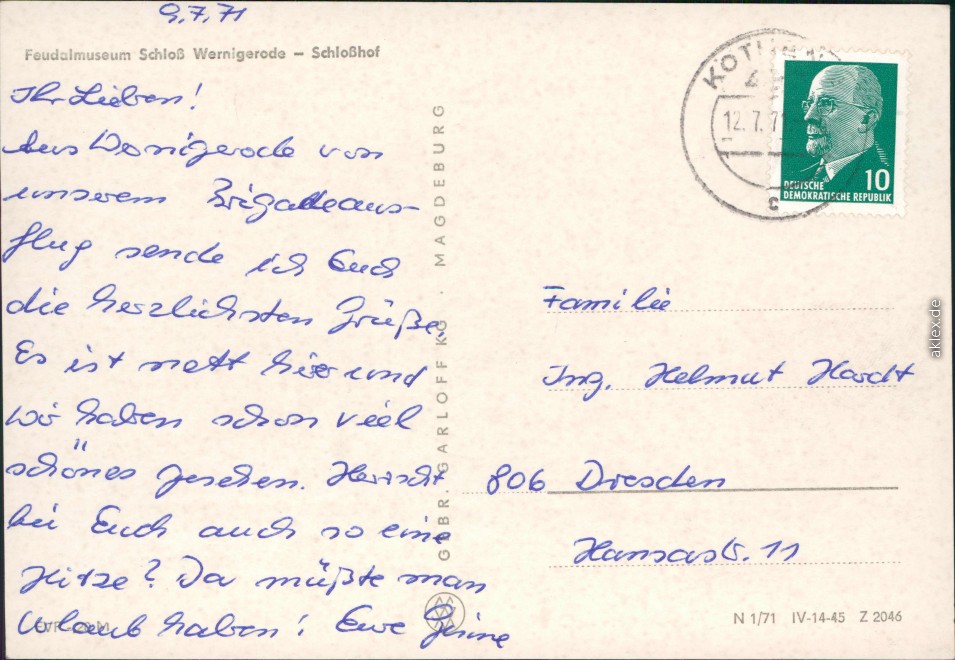 9.7.71
Feudalmuseum Schloß Wernigerode – Schloßhof
Ihr Lieben!
Aus Wernigerode von
unserem Brigadeaus-
flug sende ich Euch
die herzlichsten Grüße.
Es ist nett hier und
wir haben schon viel
schönes gesehen. Herrscht
bei Euch auch so eine
Hitze? Da müßte man
Urlaub haben! Eure
GEBR. GARLOFF KG · MAGDEBURG
12.7.71
c
10
DEUTSCHE
DEMOKRATISCHE REPUBLIK
Familie
Ing. Helmut Hardt
806 Dresden
Hansastr. 11
N 1/71 IV-14-45 Z 2046
aklex.de